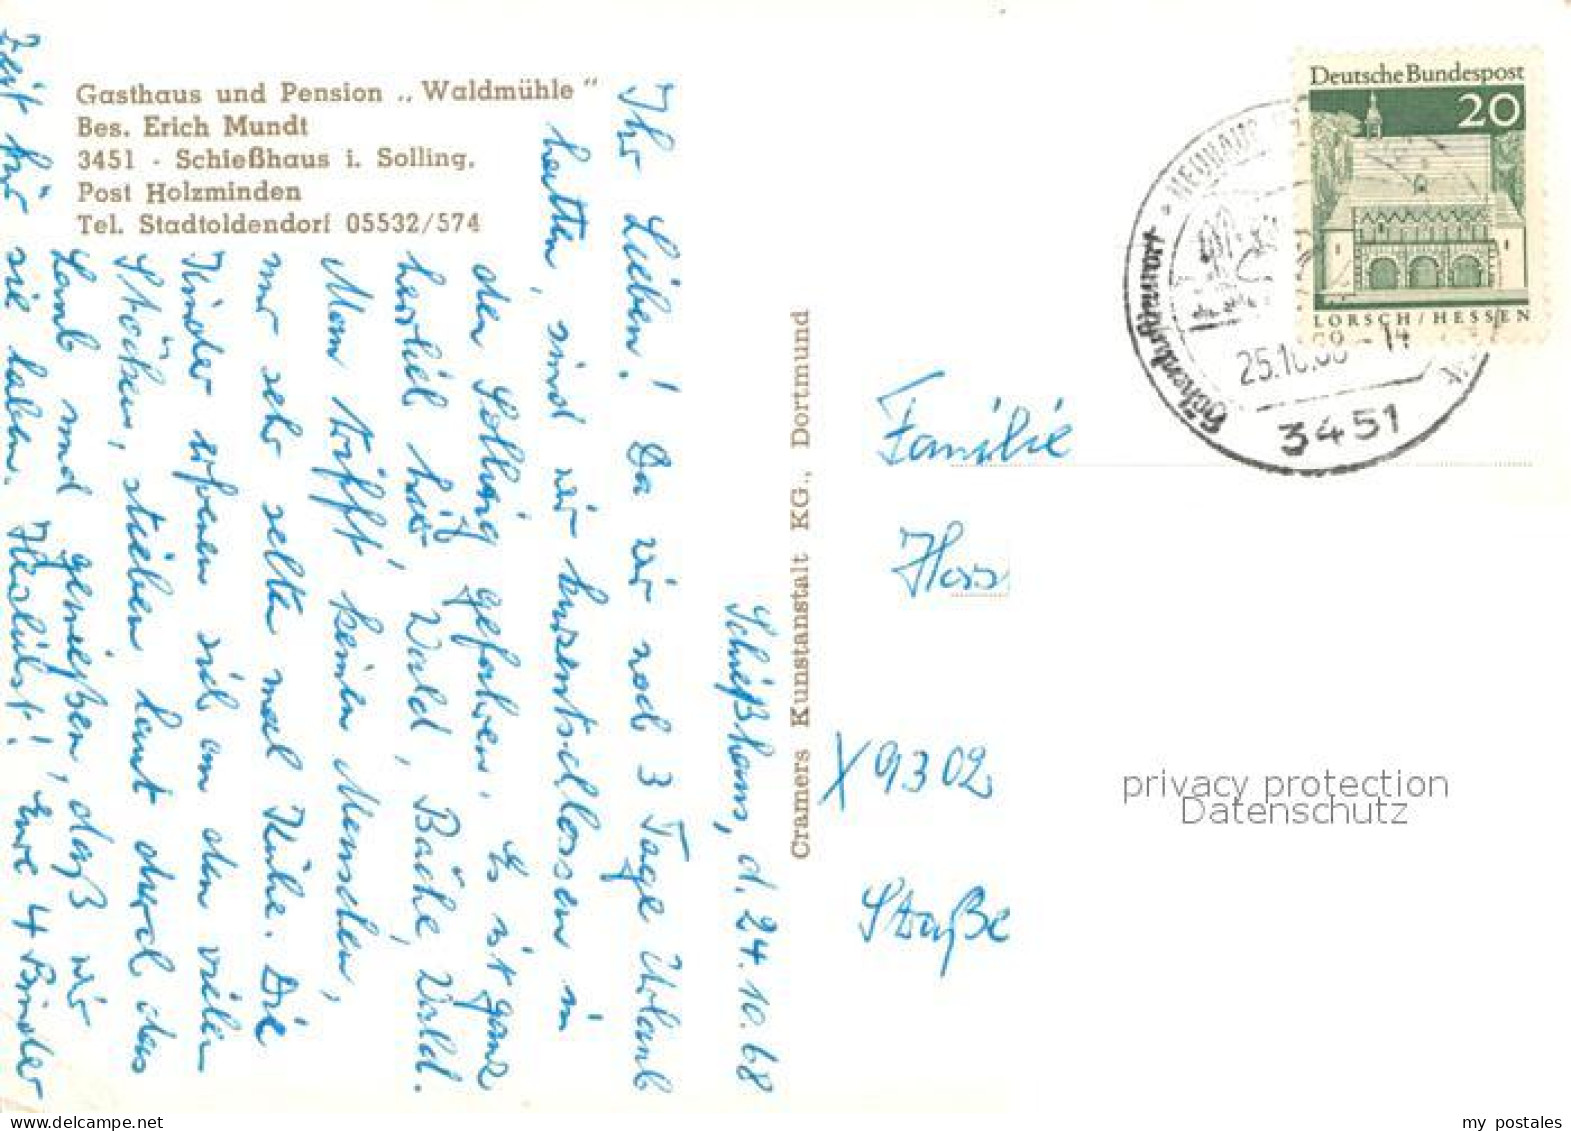 Gasthaus und Pension „Waldmühle"
Bes. Erich Mundt
3451 - Schießhaus i. Solling,
Post Holzminden
Tel. Stadtoldendorf 05532/574
Schießhaus, d. 24.10.68
Ihr Lieben! Da wir noch 3 Tage Urlaub
hatten, sind wir kurzentschlossen in
den Solling gefahren. Es ist ganz
herrlich hier, Wald, Bäche, Wald.
Man trifft keinen Menschen,
nur sehr selten mal Kühe. Die
Kinder erfreuen sich an den vielen
Stöcken, stieben laut durch das
Laub und genießen, daß wir
Zeit für sie haben. Herzlichst! Eure 4 Binder
Cramers Kunstanstalt KG., Dortmund
Deutsche Bundespost
20
LORSCH / HESSEN
NEUHAUS
Höhenluftkurort
25.10.68 - 14
3451
Familie
X 9302
Straße
privacy protection
Datenschutz
my postales